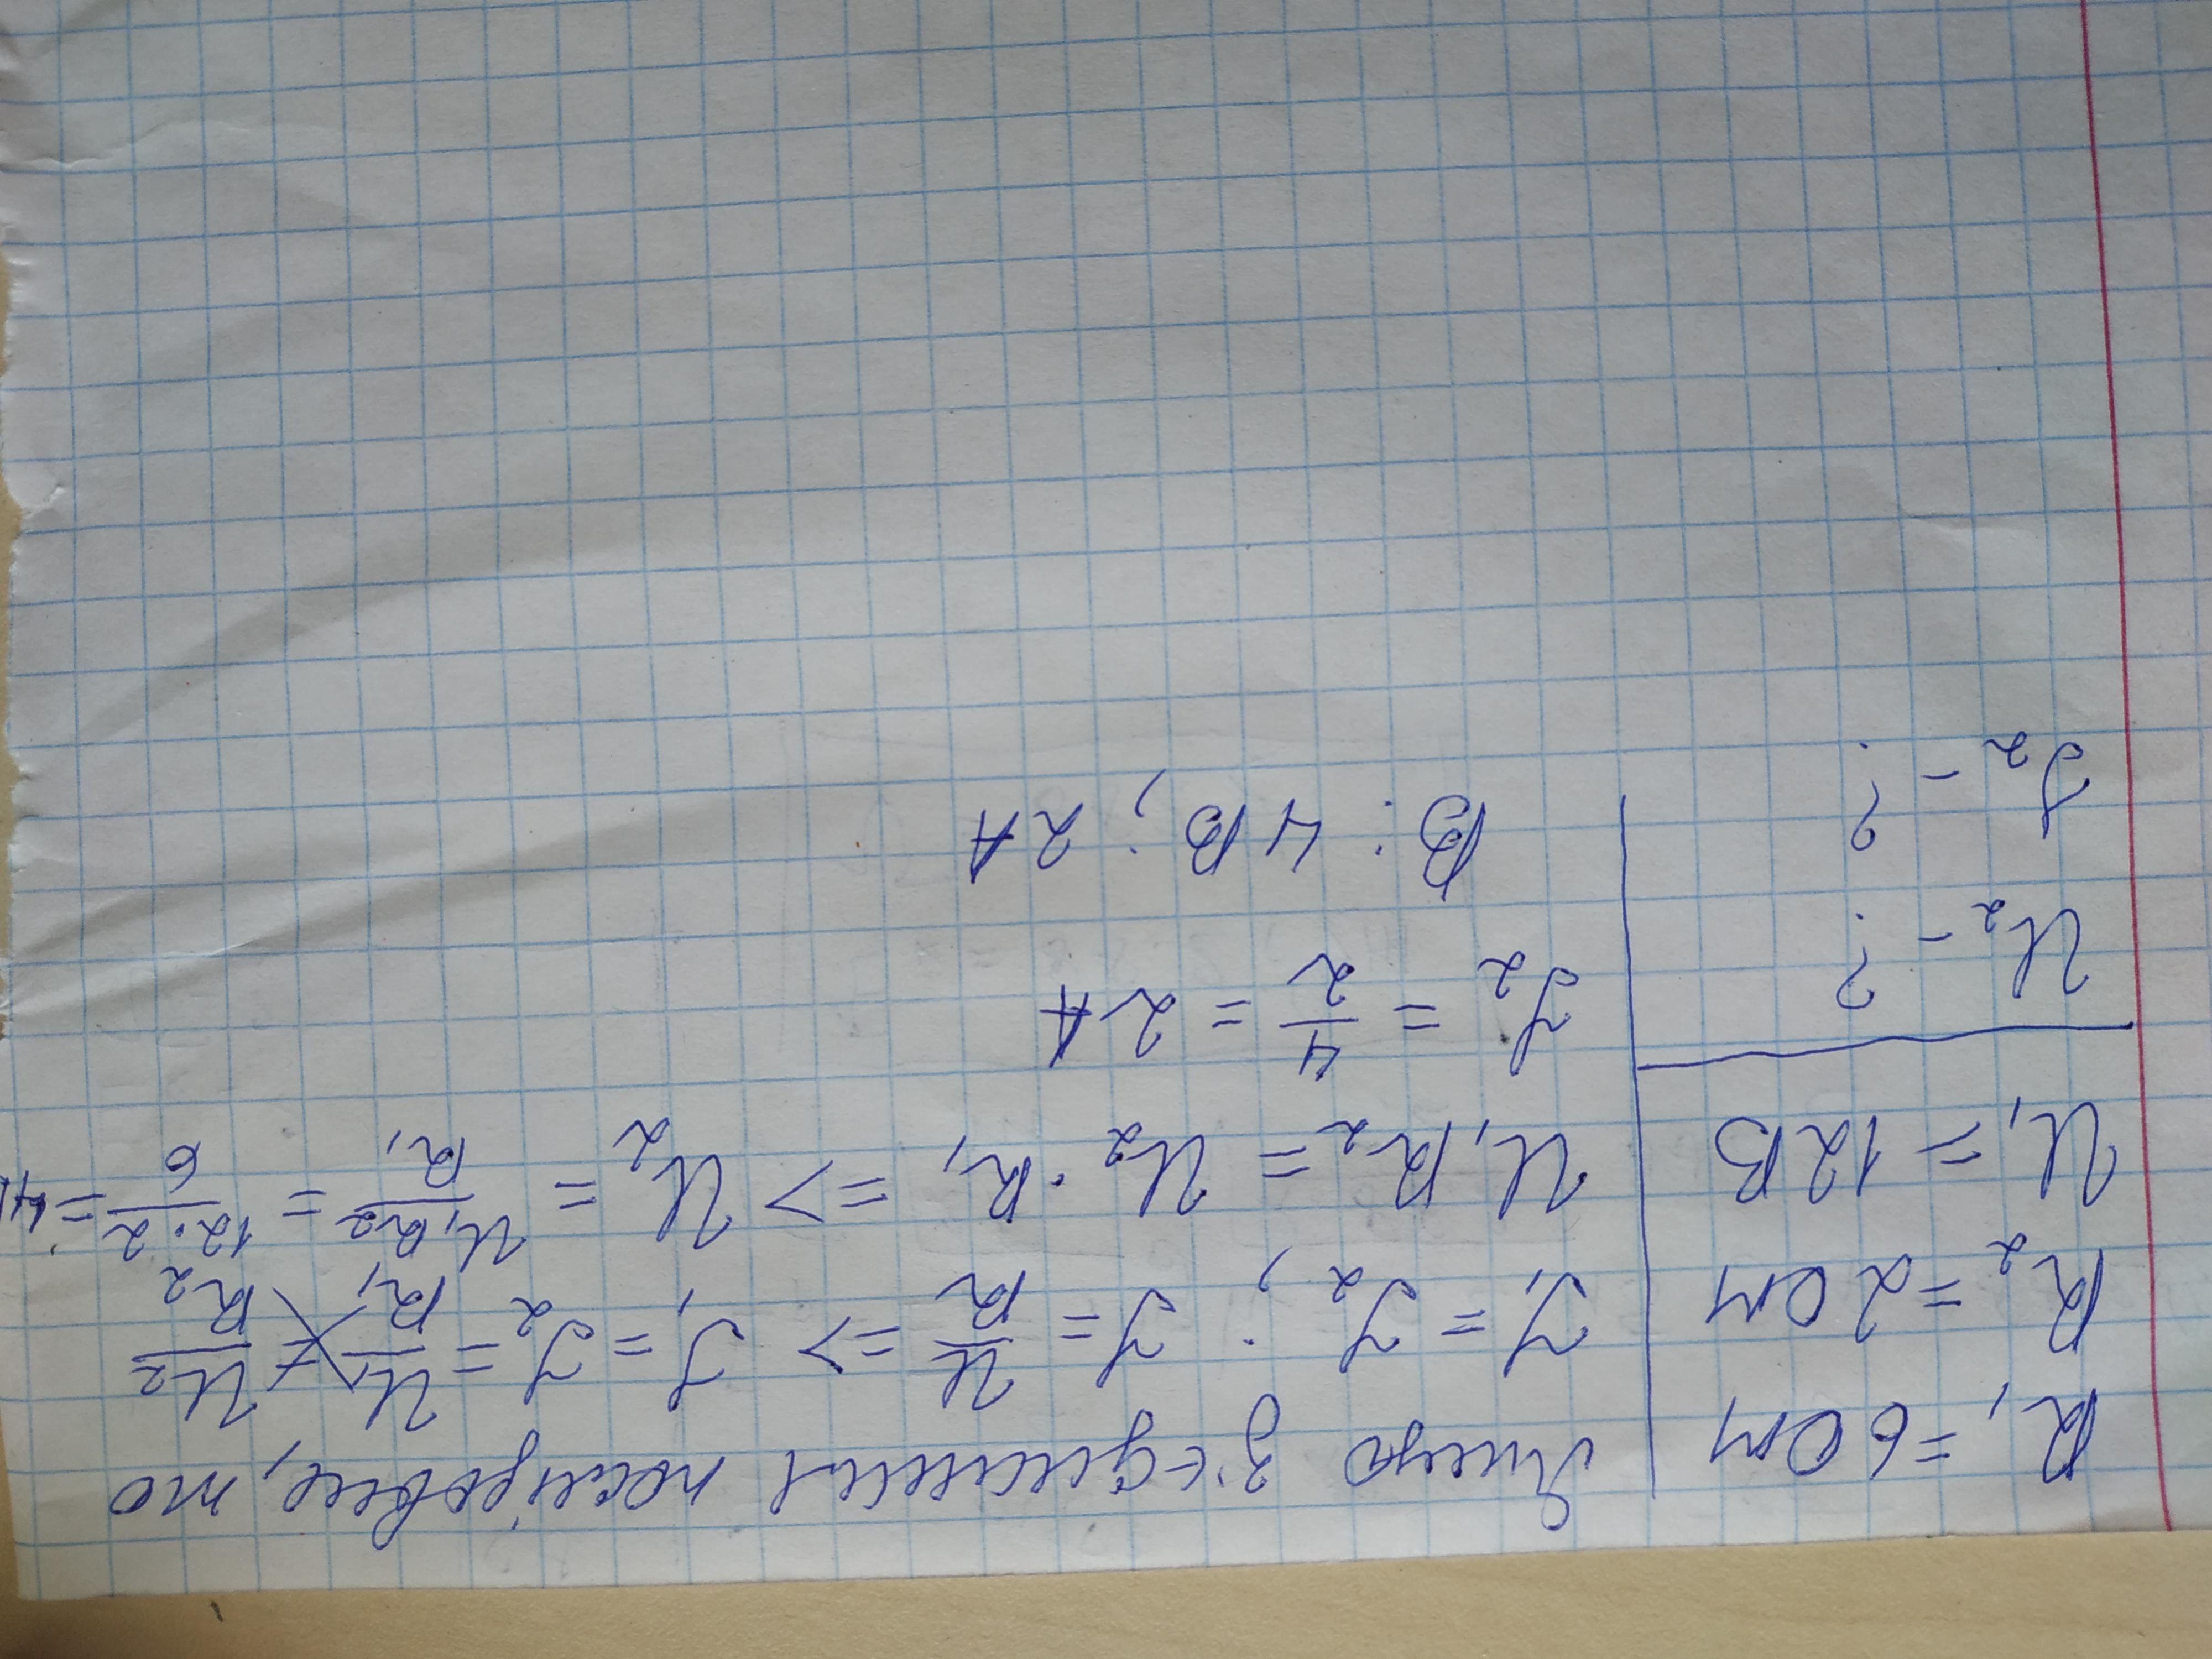 R₁ = 6 Ом
R₂ = 2 Ом
U₁ = 12В
U₂ - ?
I₂ - ?
Якщо з'єднання послідовне, то
I₁ = I₂; I = U/R => I₁ = I₂ = U₁/R₁ = U₂/R₂
U₁R₂ = U₂·R₁ => U₂ = U₁R₂/R₁ = 12·2/6 = 4
I₂ = 4/2 = 2А
В: 4В; 2А